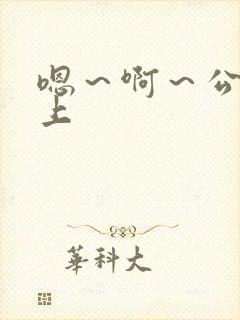 嗯～啊～公
上
華科大